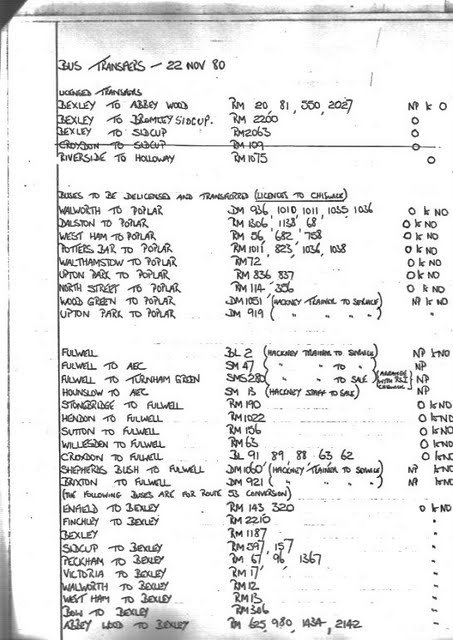 BUS TRANSFERS - 22 NOV 80
LICENSED TRANSFERS
BEXLEY TO ABBEY WOOD RM 20, 81, 550, 2027 NP k O
BEXLEY TO BROMLEY SIDCUP. RM 2200 O
BEXLEY TO SIDCUP RM2063 O
CROYDON TO SIDCUP RM 109 O
RIVERSIDE TO HOLLOWAY RM1075 O
BUSES TO BE DELICENSED AND TRANSFERRED (LICENCES TO CHISWICK)
WALWORTH TO POPLAR DM 936, 1010, 1011, 1035 1036 O k NO
DALSTON TO POPLAR RM 1306, 1138, 68 O k NO
WEST HAM TO POPLAR RM 56, 682, 758 O k NO
POTTERS BAR TO POPLAR RM 1011, 823, 1036, 1038 O k NO
WALTHAMSTOW TO POPLAR RM72 O k NO
UPTON PARK TO POPLAR RM 836 837 O k NO
NORTH STREET TO POPLAR RM 114, 356 O k NO
WOOD GREEN TO POPLAR DM1051 (HACKNEY TRAINER TO SERVICE) NP k NO
UPTON PARK TO POPLAR DM 919 ( " " " " ) " "
FULWELL BL 2 (HACKNEY TRAINER TO SERVICE) NP k NO
FULWELL TO AEC SM 47 ( " " TO " ) NP
FULWELL TO TURNHAM GREEN SMS280 ( " " TO SALE) (ARRANGE WITH CHISWICK) NP
HOUNSLOW TO AEC SM 13 (HACKNEY STAFF TO SALE) NP
STONEBRIDGE TO FULWELL RM190 O k NO
HENDON TO FULWELL RM1022 O k NO
SUTTON TO FULWELL RM 156 O k NO
WILLESDEN TO FULWELL RM 63 O k NO
CROYDON TO FULWELL BL 91, 89, 88, 63 62 O k NO
SHEPHERDS BUSH TO FULWELL DM1060 (HACKNEY TRAINER TO SERVICE) NP k NO
BRIXTON TO FULWELL DM 921 ( " " " " ) NP k NO
(THE FOLLOWING BUSES ARE FOR ROUTE 53 CONVERSION)
ENFIELD TO BEXLEY RM 143 320 O k NO
FINCHLEY TO BEXLEY RM 2210 "
BEXLEY RM 1187 "
SIDCUP TO BEXLEY RM 597, 157 "
PECKHAM TO BEXLEY RM 67, 96, 1367 "
VICTORIA TO BEXLEY RM 17 "
WALWORTH TO BEXLEY RM 12 "
WEST HAM TO BEXLEY RM 13 "
BOW TO BEXLEY RM306 "
ABBEY WOOD TO BEXLEY RM 625, 980, 1434, 2142 "